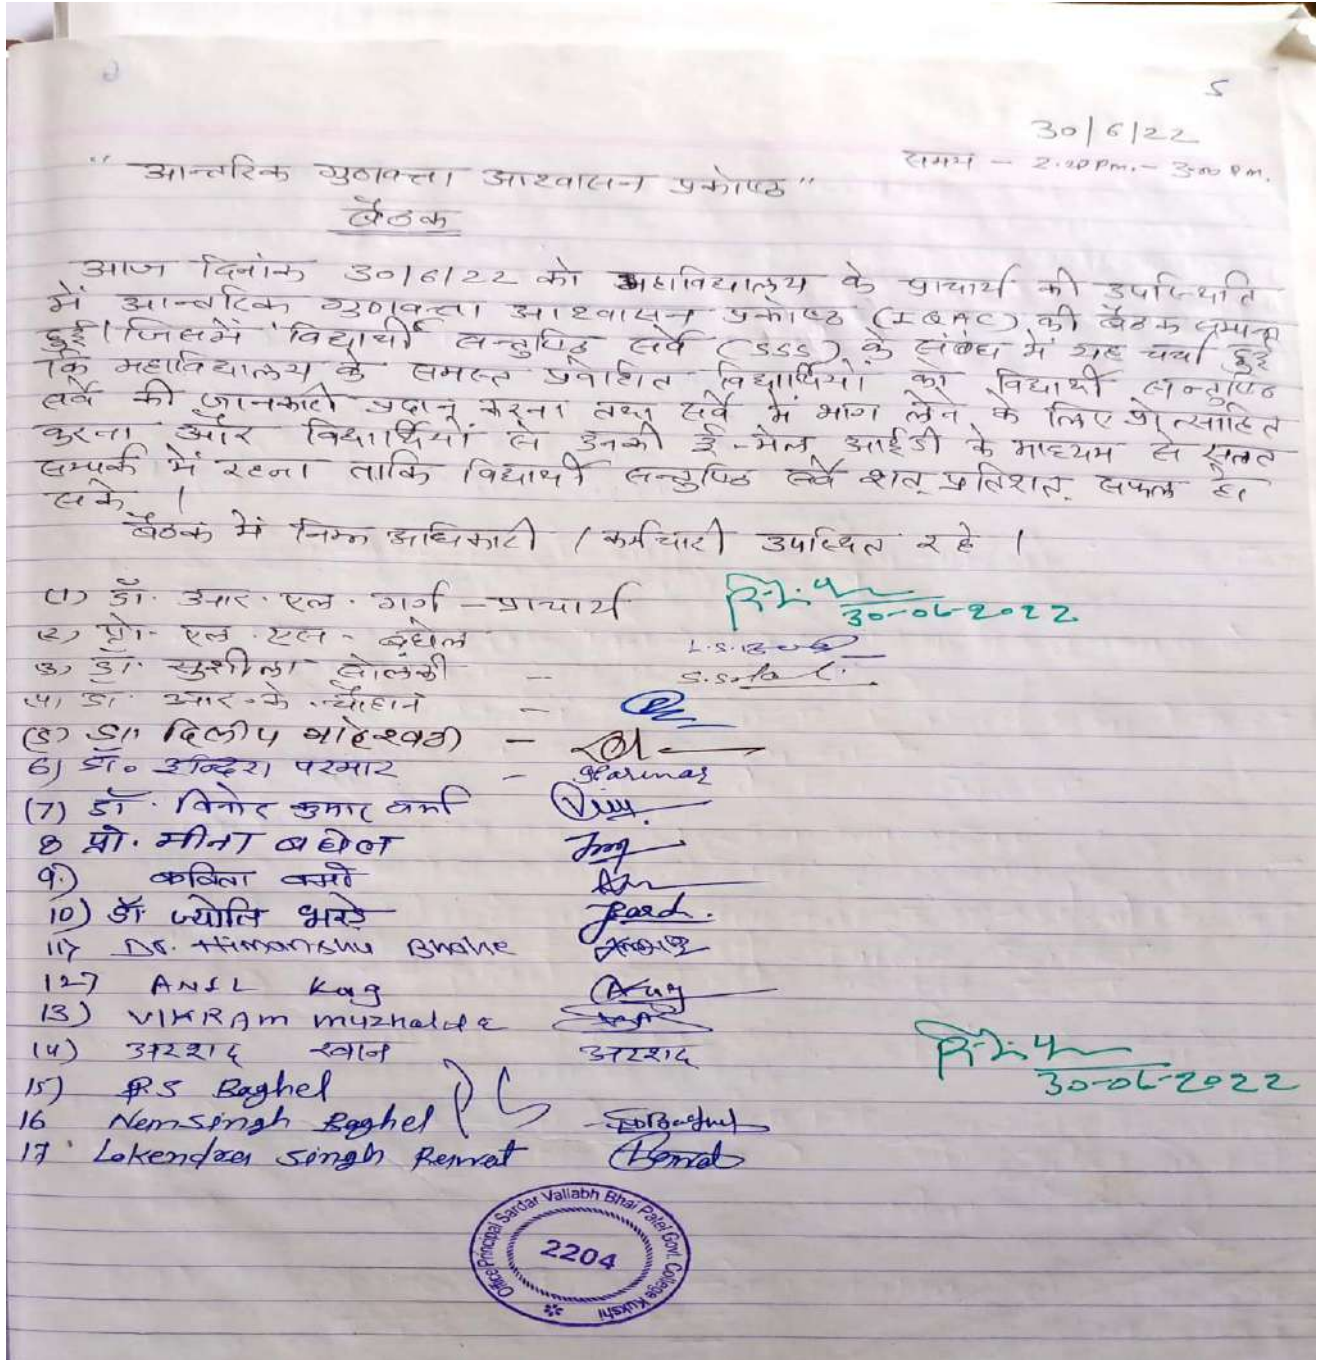 5
30/6/22
समय - 2.20 Pm. - 3.00 Pm.
"आन्तरिक गुणवत्ता आश्वासन प्रकोष्ठ"
बैठक
आज दिनांक 30/6/22 को महाविद्यालय के प्राचार्य की उपस्थिति
में आन्तरिक गुणवत्ता आश्वासन प्रकोष्ठ (IQAC) की बैठक सम्पन्न
हुई। जिसमें विद्यार्थी सन्तुष्टि सर्वे (SSS) के संबंध में यह चर्चा हुई
कि महाविद्यालय के समस्त प्रवेशित विद्यार्थियों को विद्यार्थी सन्तुष्टि
सर्वे की जानकारी प्रदान करना तथा सर्वे में भाग लेने के लिए प्रोत्साहित
करना और विद्यार्थियों से उनकी ई-मेल आईडी के माध्यम से सतत
सम्पर्क में रहना ताकि विद्यार्थी सन्तुष्टि सर्वे शत् प्रतिशत् सफल हो
सके।
बैठक में निम्न अधिकारी / कर्मचारी उपस्थित रहे।
(1) डॉ. आर. एल. गर्ग - प्राचार्य
30-06-2022
(2) प्रो. एल. एस. बघेल
(3) डॉ. सुशीला सोलंकी -
(4) डॉ. आर. के. चौहान -
(5) डॉ. दिलीप माहेश्वरी -
6) डॉ. इन्दिरा परमार - Parmar
(7) डॉ. विनोद कुमार वर्मा
8 प्रो. मीना बघेल
9.) कविता वर्मा
10) डॉ. ज्योति भरडे
11) Dr. Himanshu
12) ANIL Kag
13) VIKRAM Muzhalde
14) अरशद खान अरशद
30-06-2022
15) R.S Baghel
16 Nemsingh Baghel
17 Lokendra Singh Rewat
Office Principal Sardar Vallabh Bhai Patel Govt. College Kukshi
2204